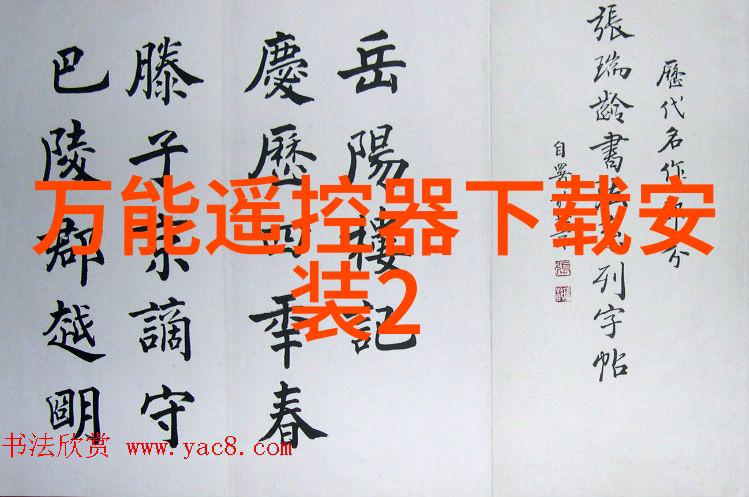 万能遥控器下载安
装2
歷代名作部分
張瑞齡書法系列字帖
自署
岳陽樓記
慶歷四年春
滕子京謫守
巴陵郡越明
书法欣赏 www.yac8.com